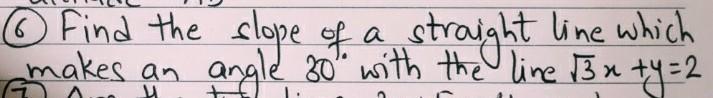 ⑥ Find the slope of a straight line which
makes an angle 30° with the line √3x+y=2